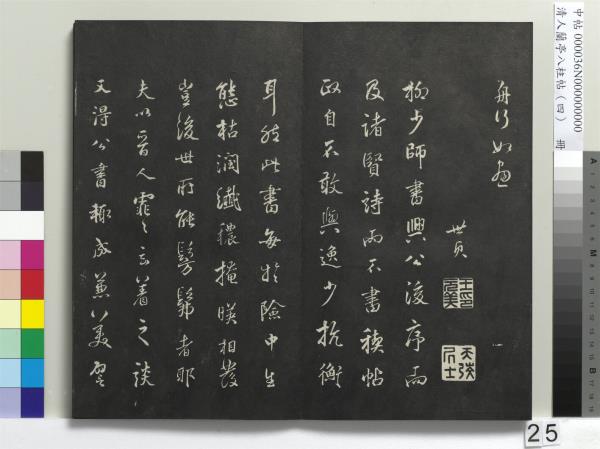 舟行如画
世貞
王氏元美
天弢居士
柳少師書興公後序而
及諸賢詩而不書稧帖
政自不敢與逸少抗衡
耳然此書每於險中生
態枯潤纖穠掩暎相發
豈後世所能髣髴者耶
夫以晉人霏々玄著之談
又得公書輒成兼美
中帖 000036N000000000
清人蘭亭八柱帖（四） 冊
25